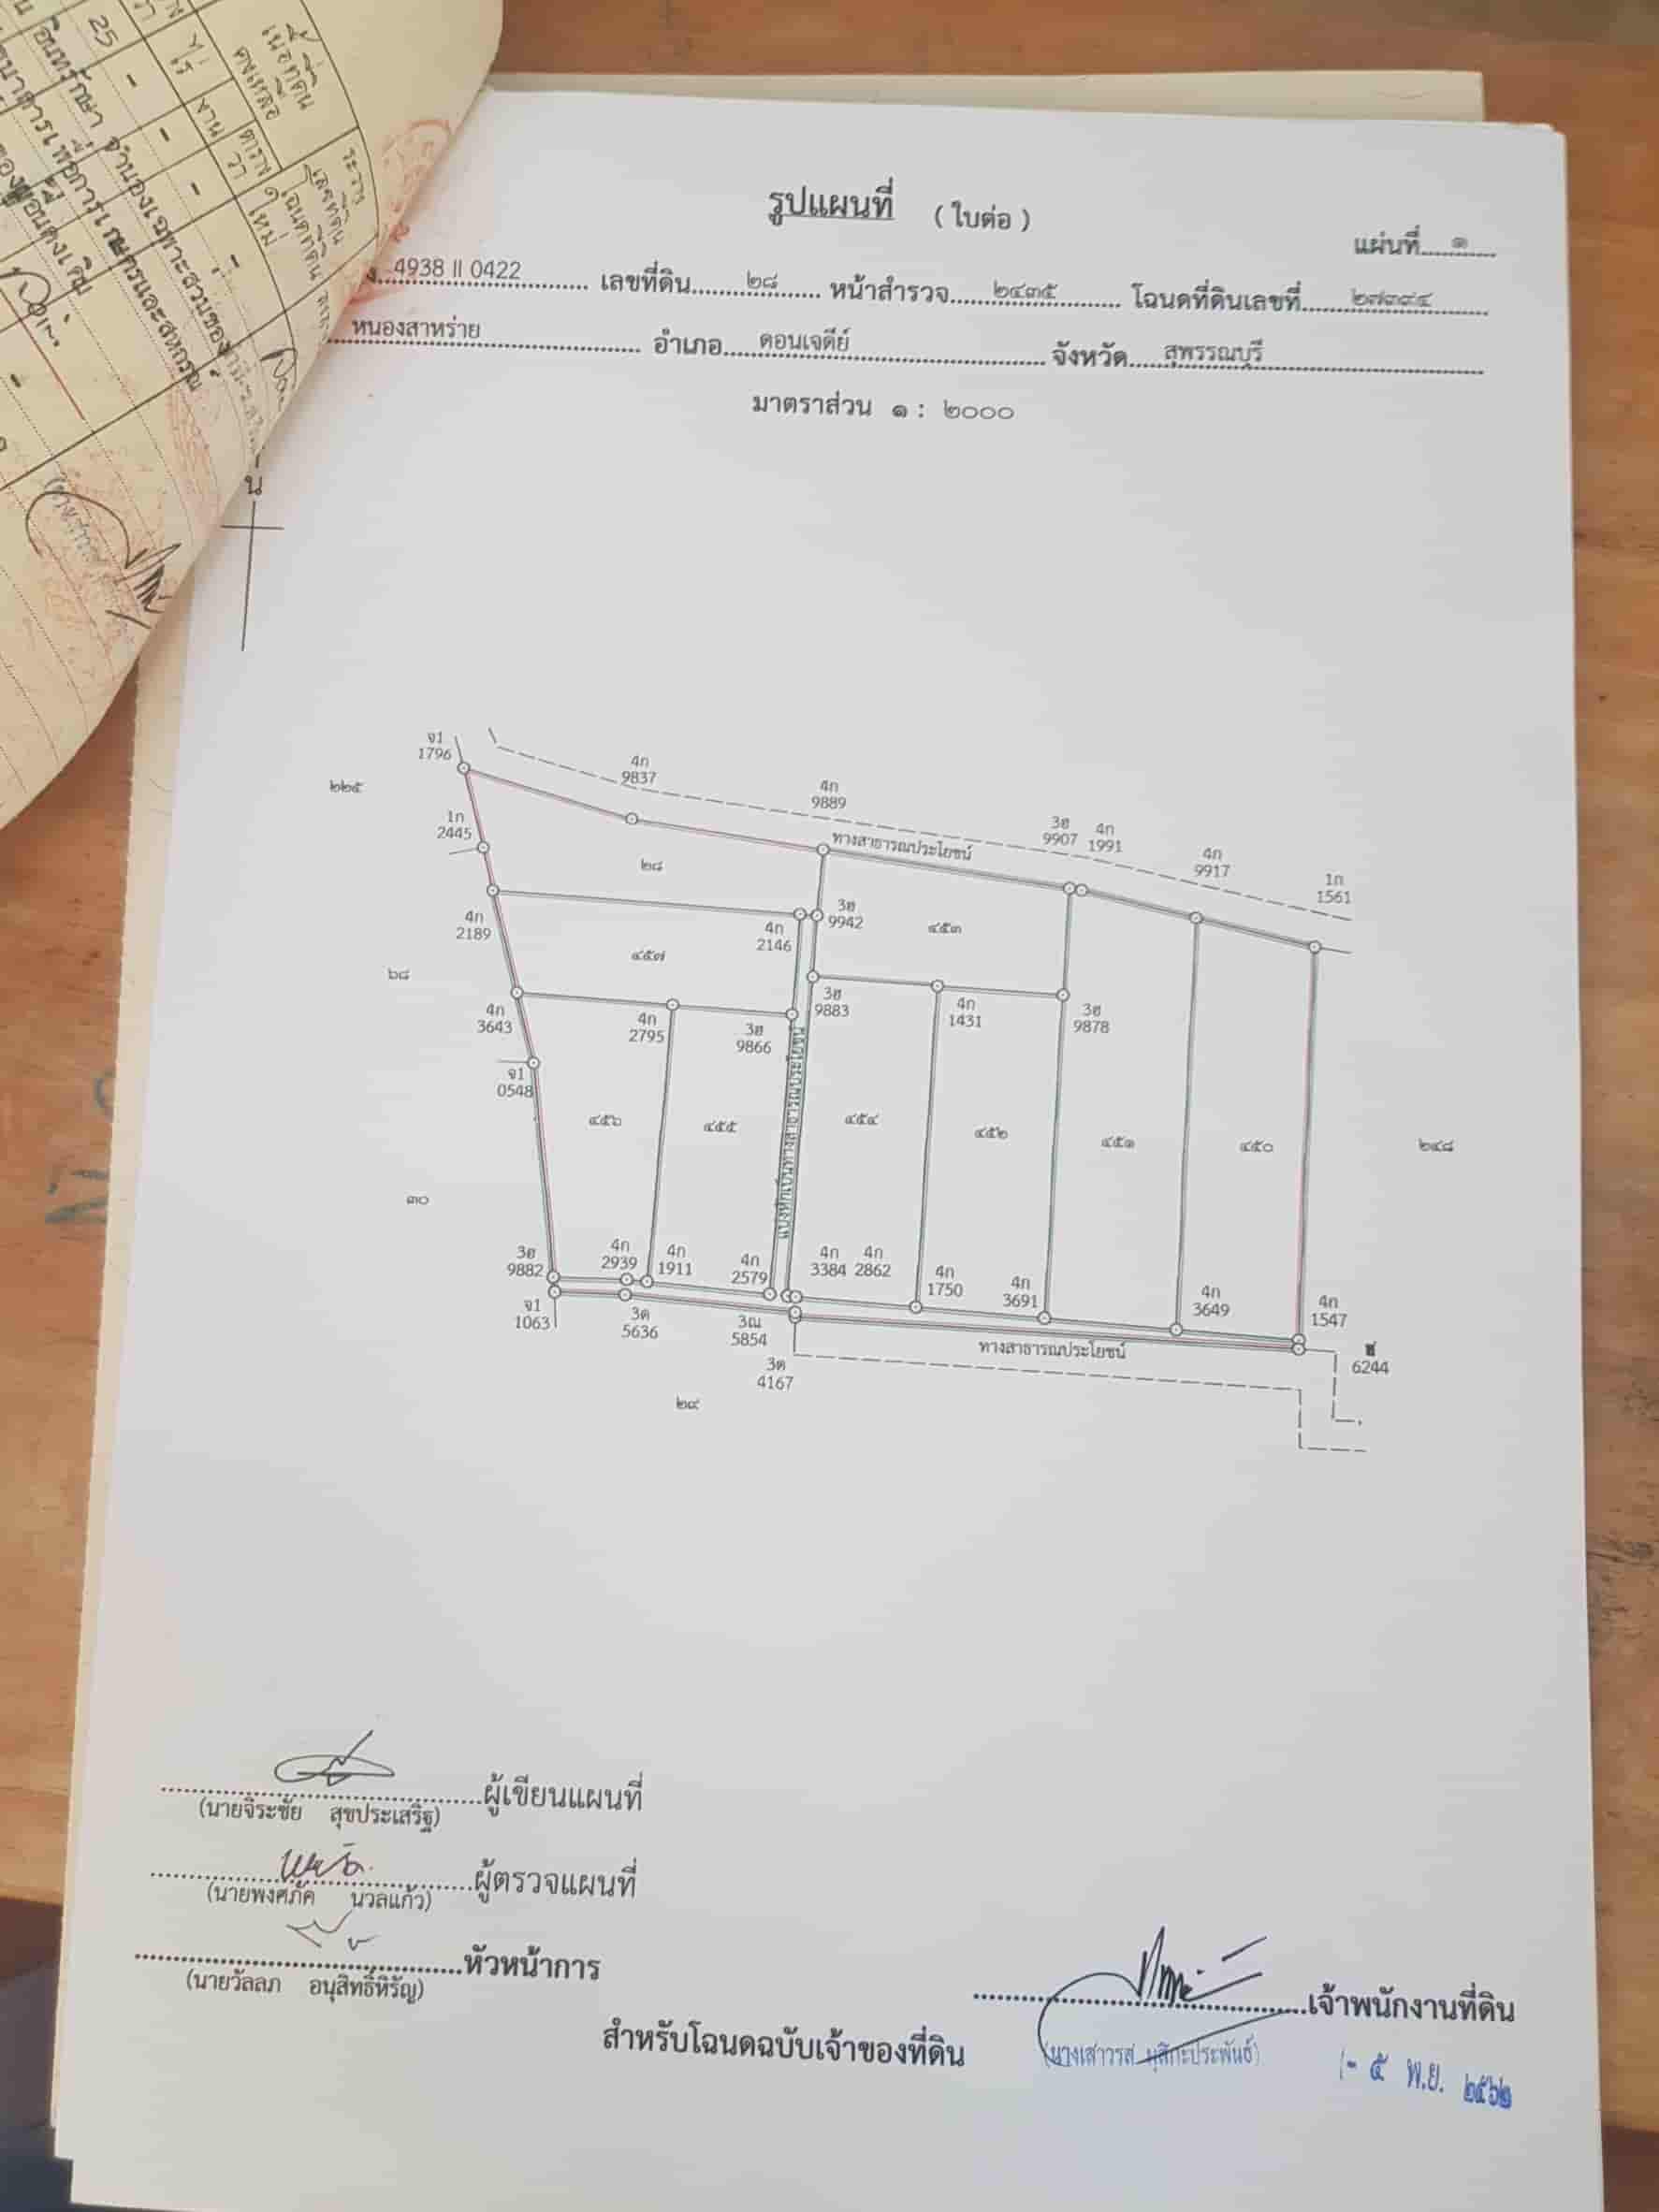 รูปแผนที่ (ใบต่อ)
แผ่นที่ ๑
4938 II 0422 เลขที่ดิน ๒๘ หน้าสำรวจ ๒๔๓๕ โฉนดที่ดินเลขที่ ๒๗๓๙๔
หนองสาหร่าย อำเภอ ดอนเจดีย์ จังหวัด สุพรรณบุรี
มาตราส่วน ๑ : ๒๐๐๐
เนื้อที่ดิน
คงเหลือ
ไร่ งาน ตาราง
วา
25 - - -
ระวาง
เลขที่ดิน
โฉนดที่ดิน
ใหม่
น
จ1
1796
4ก
9837
4ก
9889
3ฮ
9907
4ก
1991
4ก
9917
1ก
1561
๒๒๕
1ก
2445
ทางสาธารณประโยชน์
๒๘
4ก
2189
4ก
2146
3ฮ
9942
๔๕๓
๔๕๗
๖๘
4ก
3643
4ก
2795
3ฮ
9866
3ฮ
9883
4ก
1431
3ฮ
9878
จ1
0548
แบ่งหักเป็นทางสาธารณประโยชน์
๔๕๖
๔๕๕
๔๕๔
๔๕๒
๔๕๑
๔๕๐
๒๔๘
๓๐
3ฮ
9882
4ก
2939
4ก
1911
4ก
2579
4ก
3384
4ก
2862
4ก
1750
4ก
3691
4ก
3649
4ก
1547
จ1
1063
3ด
5636
3ณ
5854
3ด
4167
ทางสาธารณประโยชน์
6244
๒๙
ผู้เขียนแผนที่
(นายจิระชัย สุขประเสริฐ)
ผู้ตรวจแผนที่
(นายพงศภัค นวลแก้ว)
หัวหน้าการ
(นายวัลลภ อนุสิทธิ์หิรัญ)
เจ้าพนักงานที่ดิน
(นางเสาวรส มุสิกะประพันธ์)
สำหรับโฉนดฉบับเจ้าของที่ดิน
- ๕ พ.ย. ๒๕๖๒